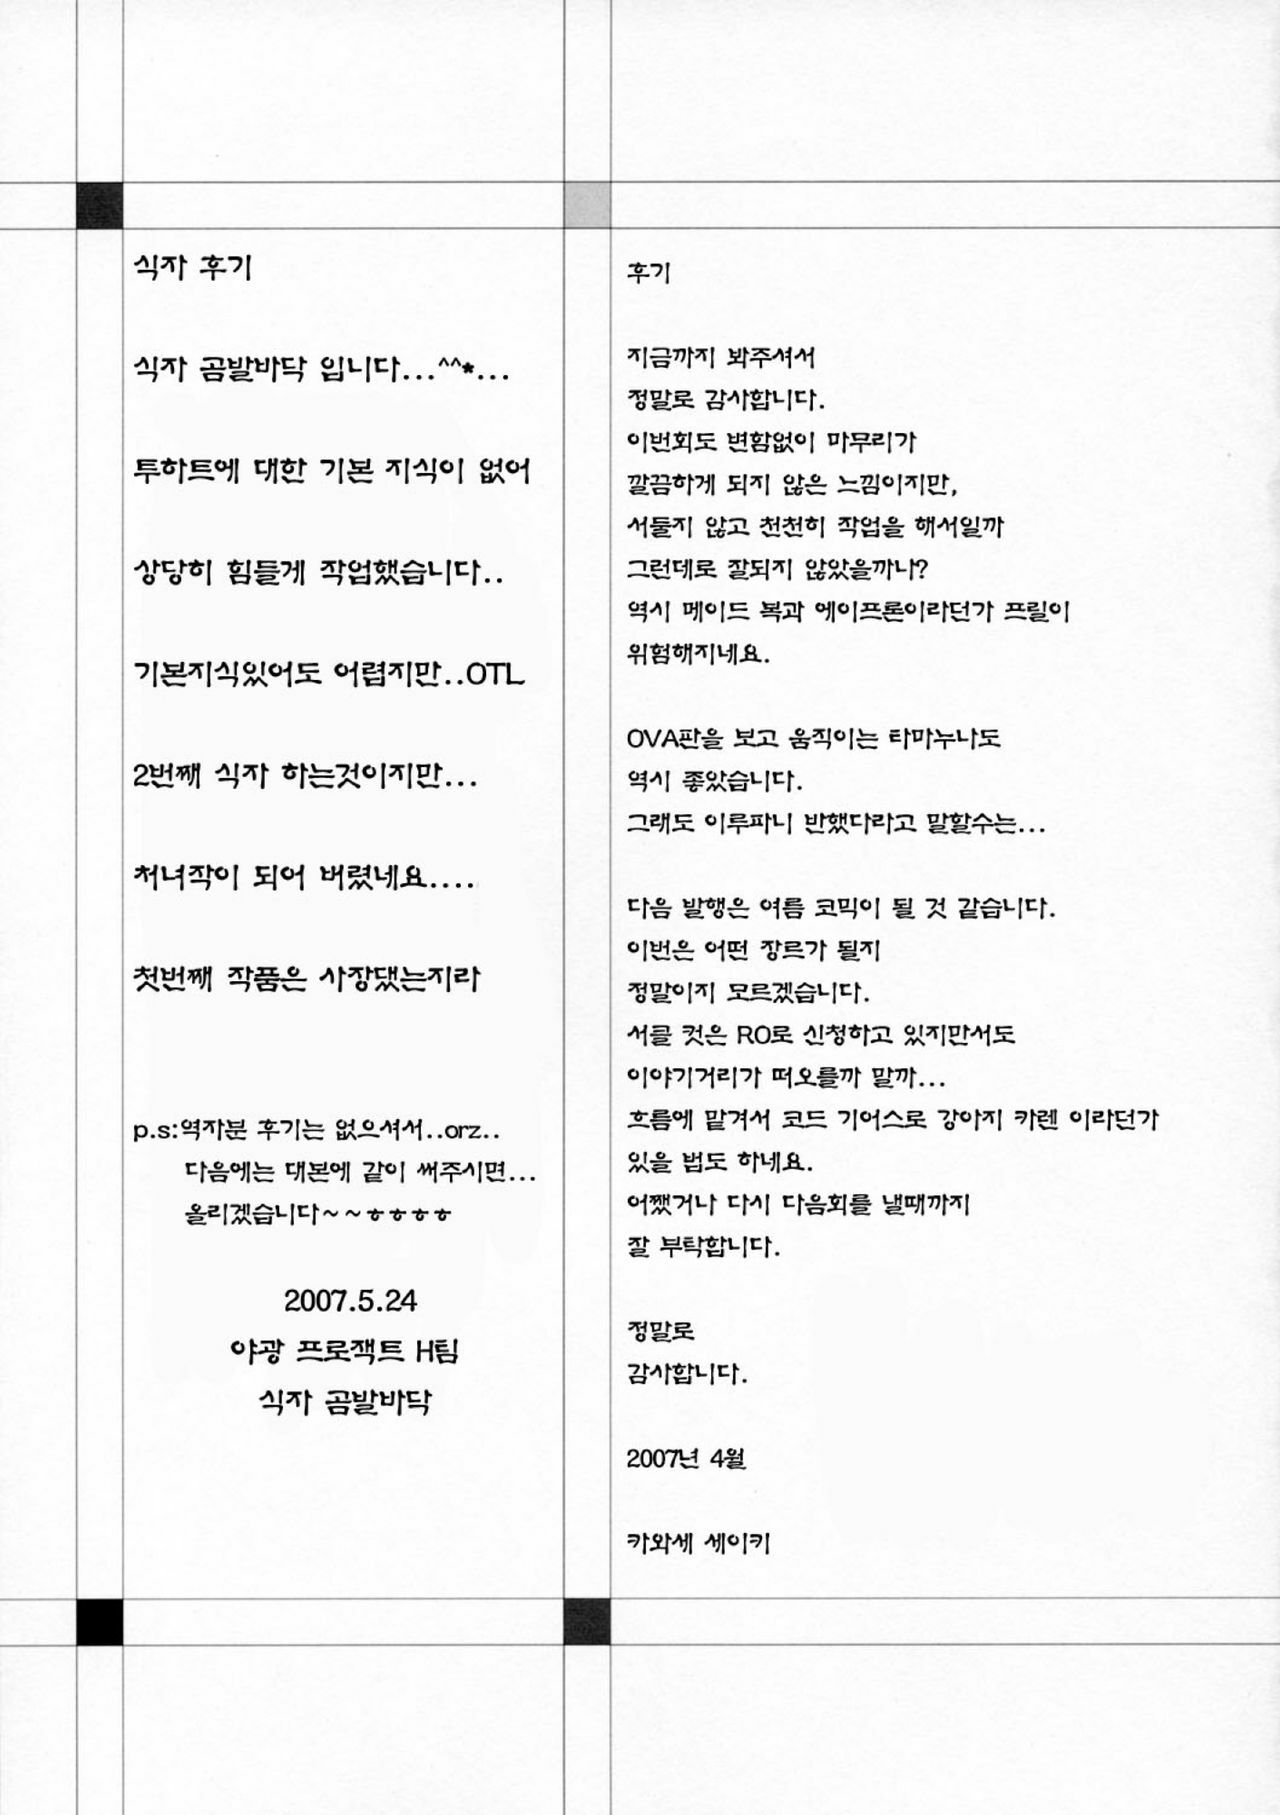 식자 후기
식자 곰발바닥 입니다...^^*...
투하트에 대한 기본 지식이 없어
상당히 힘들게 작업했습니다..
기본지식있어도 어렵지만..OTL
2번째 식자 하는것이지만...
처녀작이 되어 버렸네요....
첫번째 작품은 사장됐는지라
p.s:역자분 후기는 없으셔서..orz..
다음에는 대본에 같이 써주시면...
올리겠습니다~~ㅎㅎㅎㅎ
2007.5.24
야광 프로잭트 H팀
식자 곰발바닥
후기
지금까지 봐주셔서
정말로 감사합니다.
이번회도 변함없이 마무리가
깔끔하게 되지 않은 느낌이지만,
서둘지 않고 천천히 작업을 해서일까
그런데로 잘되지 않았을까나?
역시 메이드 복과 에이프론이라던가 프릴이
위험해지네요.
OVA판을 보고 움직이는 타마누나도
역시 좋았습니다.
그래도 이루파니 반했다라고 말할수는...
다음 발행은 여름 코믹이 될 것 같습니다.
이번은 어떤 장르가 될지
정말이지 모르겠습니다.
서클 컷은 RO로 신청하고 있지만서도
이야기거리가 떠오를까 말까...
흐름에 맡겨서 코드 기어스로 강아지 카렌 이라던가
있을 법도 하네요.
어쨌거나 다시 다음회를 낼때까지
잘 부탁합니다.
정말로
감사합니다.
2007년 4월
카와세 세이키